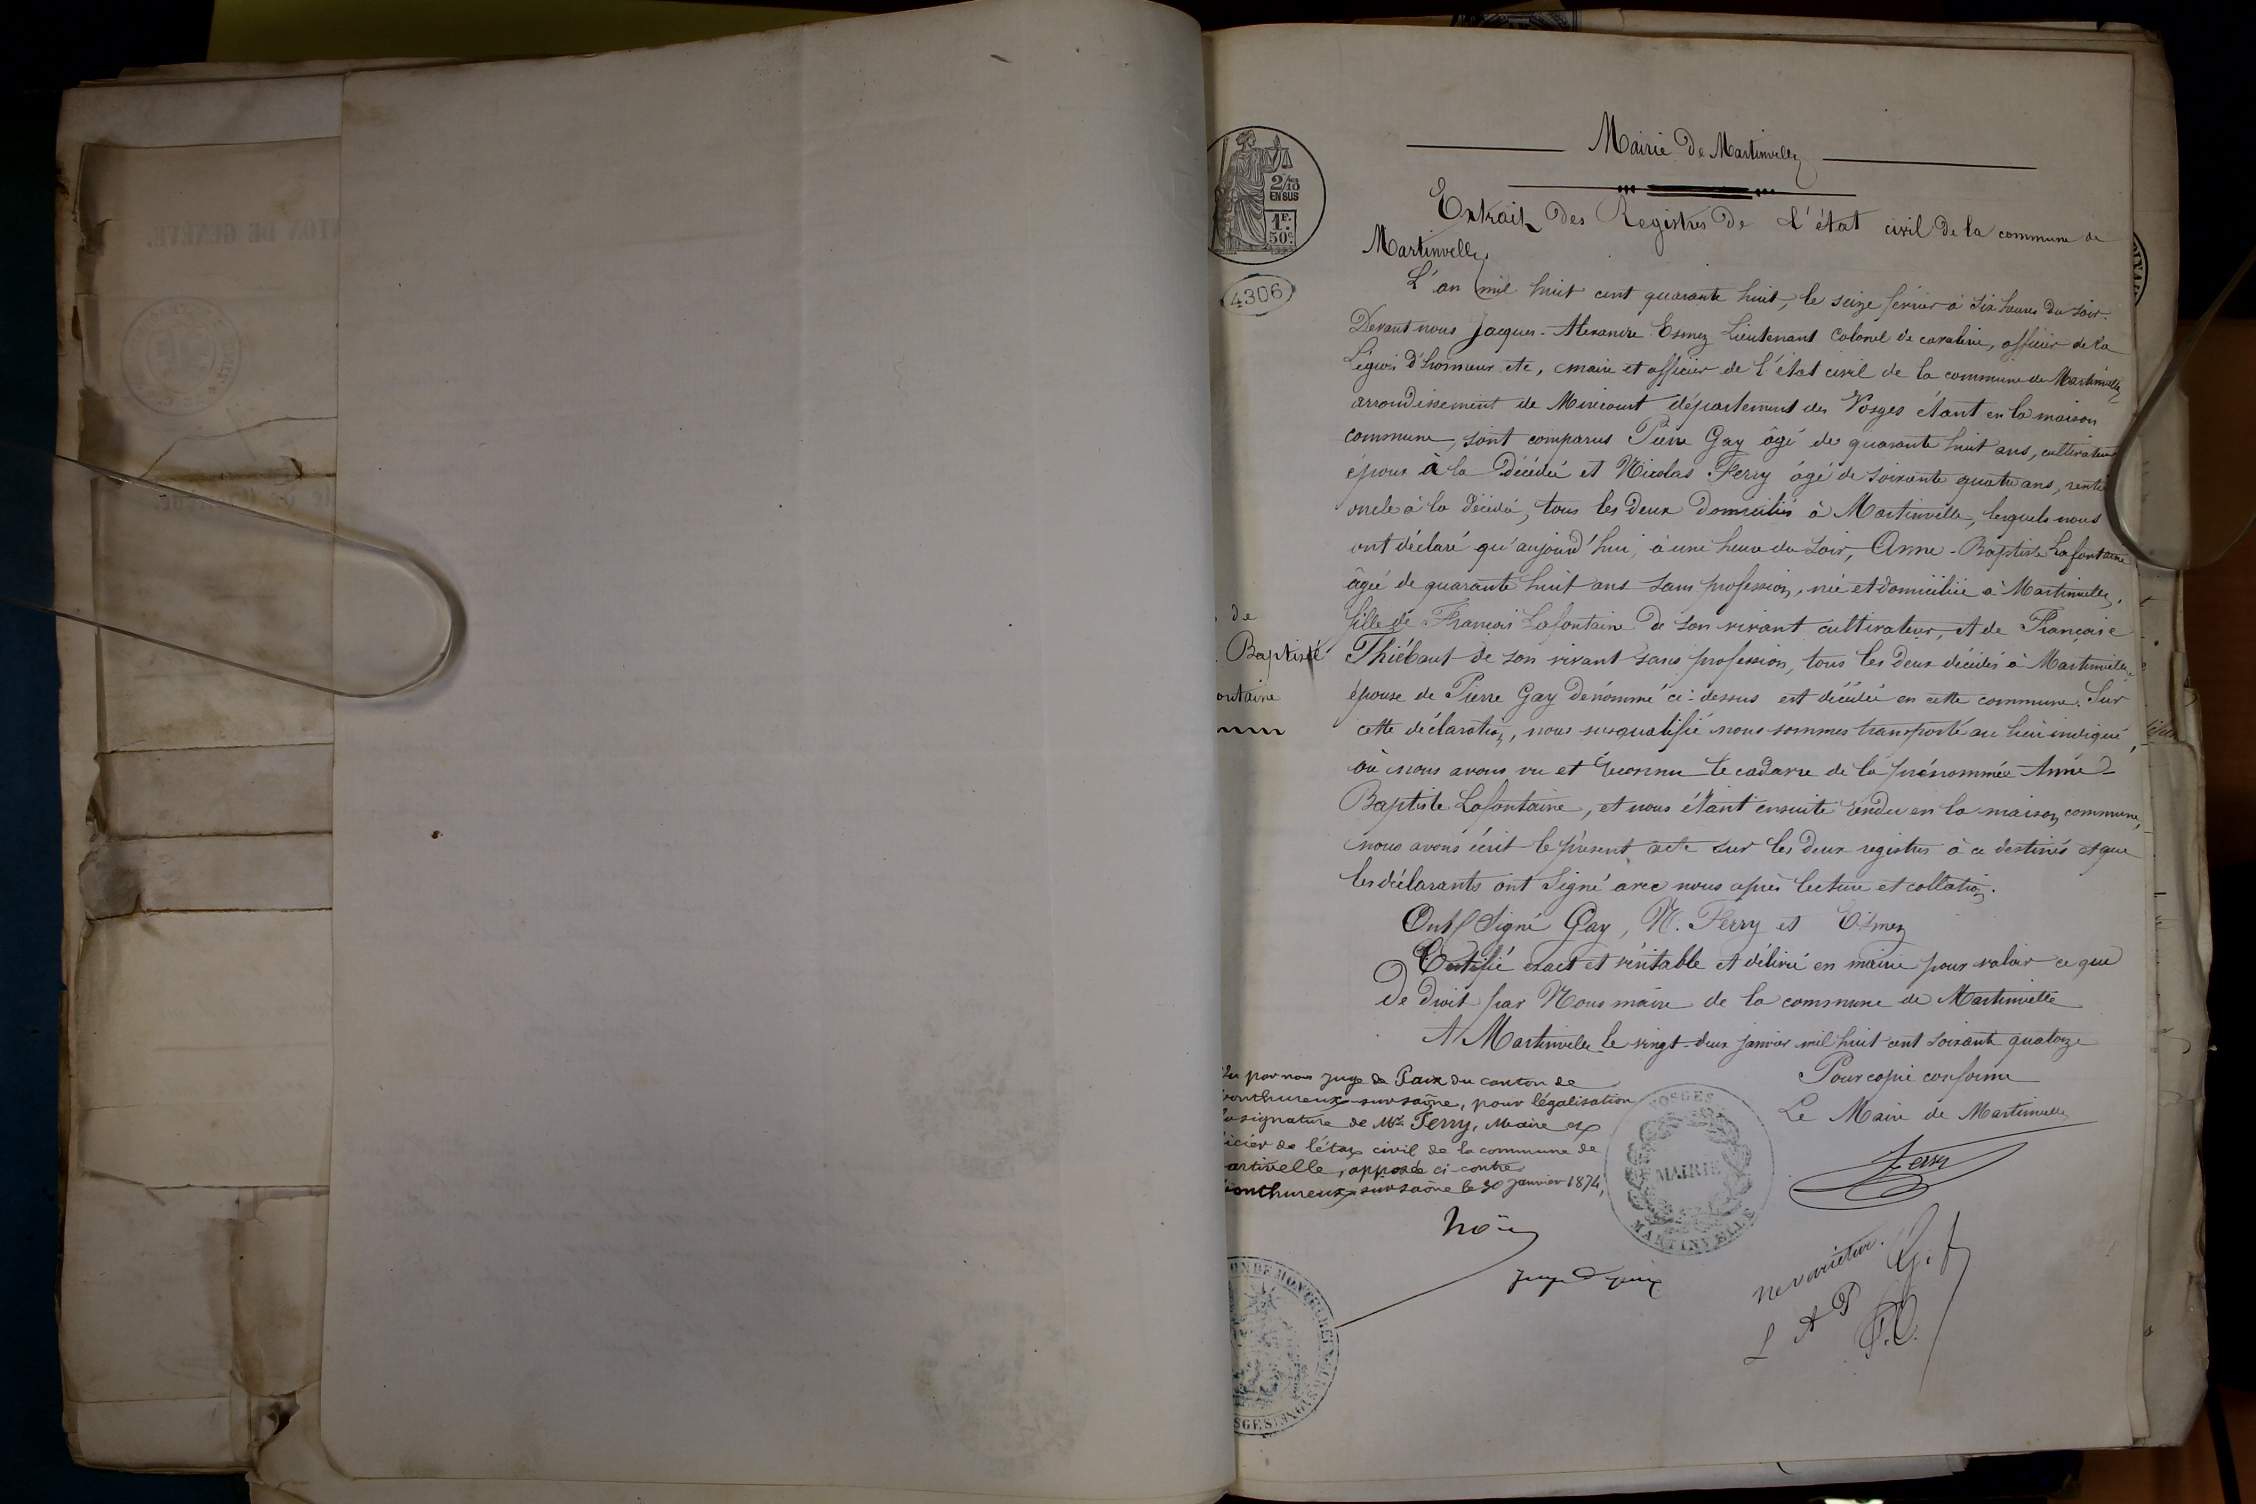 Mairie De Martinvelle
Extrait Des Registres De L'état civil De la commune de
Martinvelle
L'an mil huit cent quarante huit, le seize février à six heures du soir.
Devant nous Jacques-Alexandre Esmez Lieutenant Colonel de cavalerie, officier de la
Légion d'honneur etc, maire et officier de l'état civil de la commune de Martinvelle
arrondissement de Mirecourt département des Vosges étant en la maison
commune, sont comparus Pierre Gay âgé de quarante huit ans, cultivateur
époux à la décédée et Nicolas Ferry âgé de soixante quatre ans, renti
oncle à la décédée, tous les deux domiciliés à Martinvelle, lesquels nous
ont déclaré qu'aujourd'hui, à une heure du soir, Anne-Baptiste Lafontaine
âgée de quarante huit ans sans profession, née et domiciliée à Martinvelle,
fille de François Lafontaine de son vivant cultivateur, et de Françoise
Thiébaut de son vivant sans profession, tous les deux décédés à Martinvelle
épouse de Pierre Gay dénommé ci-dessus est décédée en cette commune. Sur
cette déclaration, nous susqualifié nous sommes transporté au lieu indiqué,
où nous avons vu et reconnu le cadavre de la prénommée Anne-
Baptiste Lafontaine, et nous étant ensuite rendu en la maison commune,
nous avons écrit le présent acte sur les deux registres à ce destinés et que
les déclarants ont signé avec nous après lecture et collation.
Ont signé Gay, N. Ferry et Esmez
Certifié exact et véritable et délivré en mairie pour valoir ce que
De droit par Nous maire de la commune de Martinvelle
A Martinvelle le vingt-deux janvier mil huit cent soixante quatorze
Pour copie conforme
Le Maire de Martinvelle
Ferry
2/10
EN SUS
1F.
50c.
4306
de
Baptiste
ontaine
Vu par nous Juge de Paix du canton de
onthureux-sur-saône, pour légalisation
la signature de Mr. Ferry, Maire et
icier de l'état civil de la commune de
artinvelle, apposée ci-contre
onthureux-sur-saône le 30 janvier 1874,
juge de paix
VOSGES
MAIRIE
MARTINVELLE
ON DE MONTHUREUX-SUR-S
ne varietur.